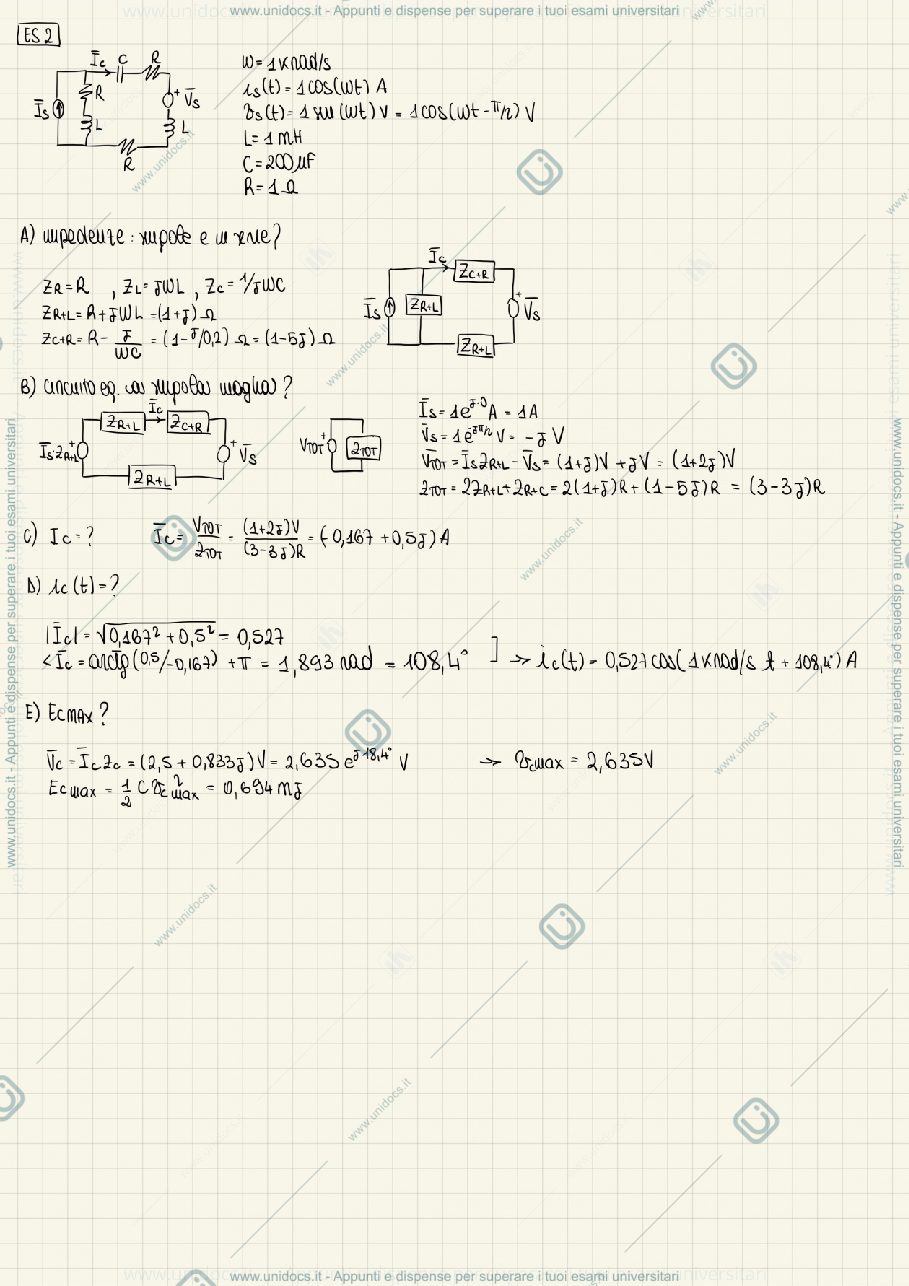 www.unidocs.it - Appunti e dispense per superare i tuoi esami universitari
ES 2
Īc C R
R
Īs
+ V̄s
L
L
R
W = 1 Krad/s
is(t) = 1 cos(Wt) A
vs(t) = 1 sin(Wt) V = 1 cos(Wt - π/2) V
L = 1 mH
C = 200 μF
R = 1 Ω
A) impedenze: simbole e in serie?
ZR = R , ZL = JWL , ZC = 1/JWC
ZR+L = R + JWL = (1+J) Ω
ZC+R = R - J/WC = (1 - J/0,2) Ω = (1-5J) Ω
Īc
ZC+R
Īs
ZR+L
+ V̄s
ZR+L
B) circuito eq. a singola maglia?
Īc
ZR+L
ZC+R
Īs·ZR+L
+
+ V̄s
ZR+L
VTOT
+
ZTOT
Īs = 1e^J·0 A = 1A
V̄s = 1e^-Jπ/2 V = -J V
V̄TOT = Īs ZR+L - V̄s = (1+J)V + JV = (1+2J)V
ZTOT = 2ZR+L + ZR+C = 2(1+J)R + (1-5J)R = (3-3J)R
C) Ic = ?
Īc = VTOT/ZTOT = (1+2J)V/(3-3J)R = (-0,167 + 0,5J) A
D) ic(t) = ?
|Īc| = √0,167² + 0,5² = 0,527
< Īc = arctg(0,5/-0,167) + π = 1,893 rad = 108,4° ] → ic(t) = 0,527 cos(1 Krad/s t + 108,4°) A
E) EcMAX ?
V̄c = Īc Zc = (2,5 + 0,833J) V = 2,635 e^J18,4° V → vcmax = 2,635V
Ecmax = 1/2 C vc²max = 0,694 mJ
www.unidocs.it - Appunti e dispense per superare i tuoi esami universitari